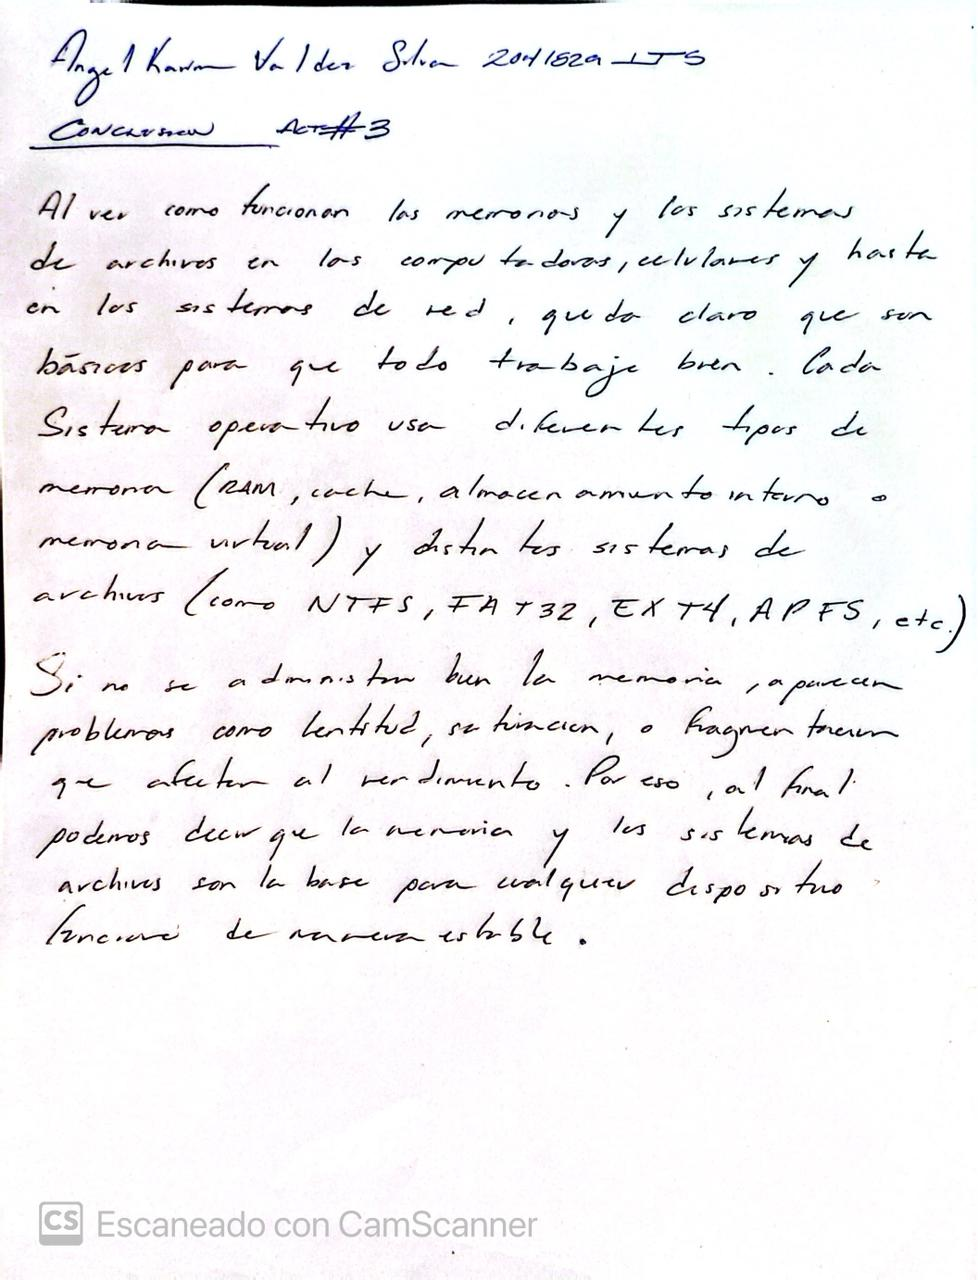 Angel Karim Valdez Silva 2041529 ITS
CONCLUSION Act#3
Al ver como funcionan las memorias y los sistemas
de archivos en las computadoras, celulares y hasta
en los sistemas de red, queda claro que son
básicos para que todo trabaje bien. Cada
Sistema operativo usa diferentes tipos de
memoria (RAM, cache, almacenamiento interno o
memoria virtual) y distintos sistemas de
archivos (como NTFS, FAT32, EXT4, APFS, etc.)
Si no se administra bien la memoria, aparecen
problemas como lentitud, saturacion, o fragmentacion
que afectan al rendimiento. Por eso, al final
podemos decir que la memoria y los sistemas de
archivos son la base para cualquier dispositivo
funcione de manera estable.
CS Escaneado con CamScanner